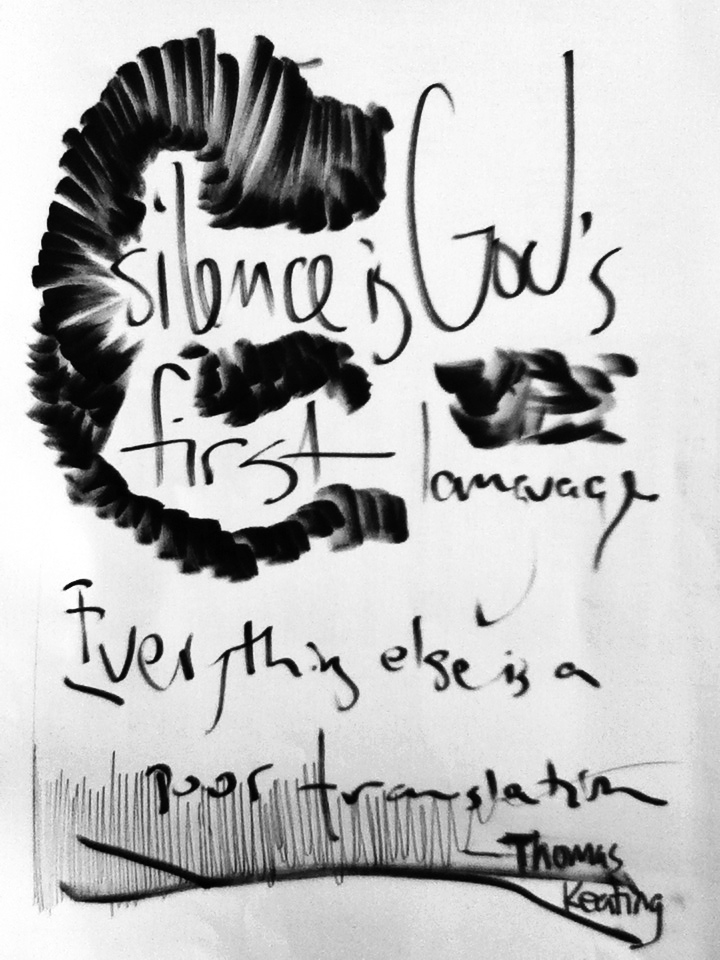 silence is God's
first language
Everything else is a
poor translation
Thomas
Keating